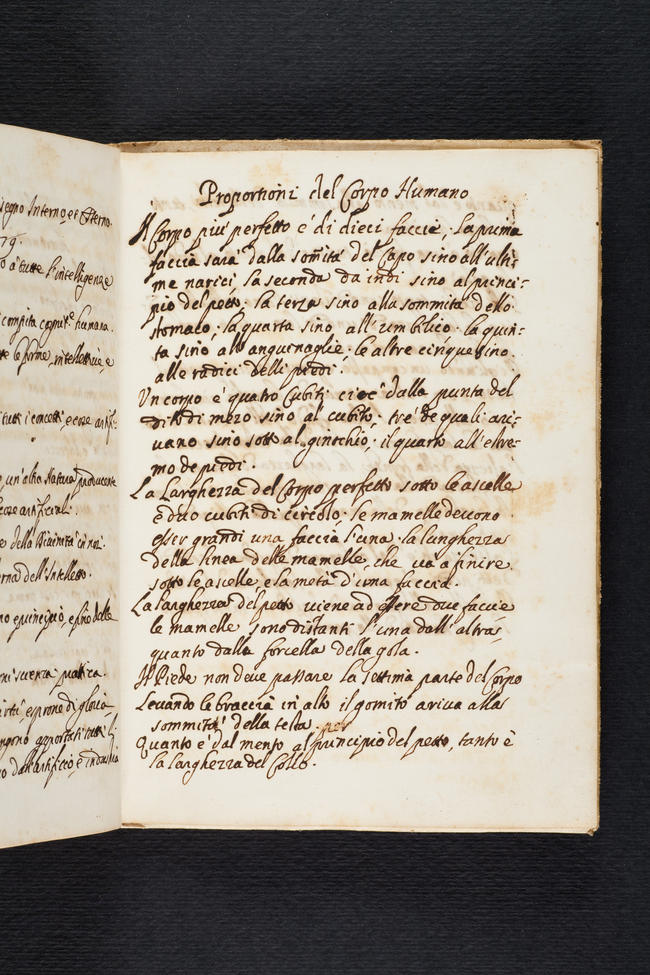 segno Interno, et Esterno.
79.
o à tutte l'intelligenze
compita cognit.e humana.
te le forme, intellettive, e
tutti i concetti, e cose artif-
, un'altra Natura producente
cose artificiali.
e della Divinità in noi.
erna dell'Intelletto.
no principio, e fine delle
ni scienza prattica.
irtù, e sprone di gloria
ngono apportati tutti li
o dall'artificio, e industria
Proportioni del Corpo Humano
Il Corpo più perfetto é di dieci faccie, la prima
faccia sarà dalla somità del Capo sino all'ulti-
me narici, la seconda da indi sino al princi-
pio del petto; la terza sino alla sommità dello
stomaco; la quarta sino all'umbilico; la quin-
ta sino all'anguinaglie; le altre cinque sino
alle radici delli piedi.
Un corpo é quatro Cubiti cioé dalla punta del
dito di mezo sino al cubito; tre de quali ari-
vano sino sotto al ginochio; il quarto all'estre-
mo de piedi.
La Larghezza del Corpo perfetto sotto le ascelle
é duo cubiti di circolo; le mamelle devono
esser grandi una faccia l'una. la lunghezza
della linea delle mamelle, che và à finire
sotto le ascelle é la metà d'una faccia.
La larghezza del petto viene ad essere due faccie
le mamelle sono distanti l'una dall'altra,
quanto dalla forcella della gola.
Il Piede non deve passare la settima parte del Corpo
Levando le braccia in alto il gomito ariva alla
sommità della testa. per
Quanto é dal mento al principio del petto, tanto é
la larghezza del Collo.